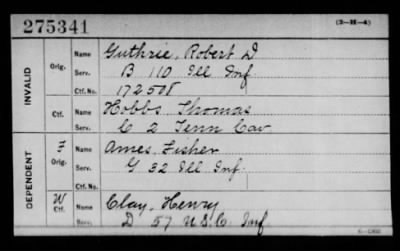 275341 (3-H-4)
INVALID
Orig. Name Guthrie, Robert D
Serv. B 110 Ill Inf
Ctf. No. 172508
Ctf. Name Hobbs, Thomas
Serv. C 2 Tenn Cav
DEPENDENT
F Orig. Name Ames, Fisher
Serv. G 32 Ill Inf.
Ctf. No.
W Ctf. Name Clay, Henry
Serv. D 57 U.S.C. Inf